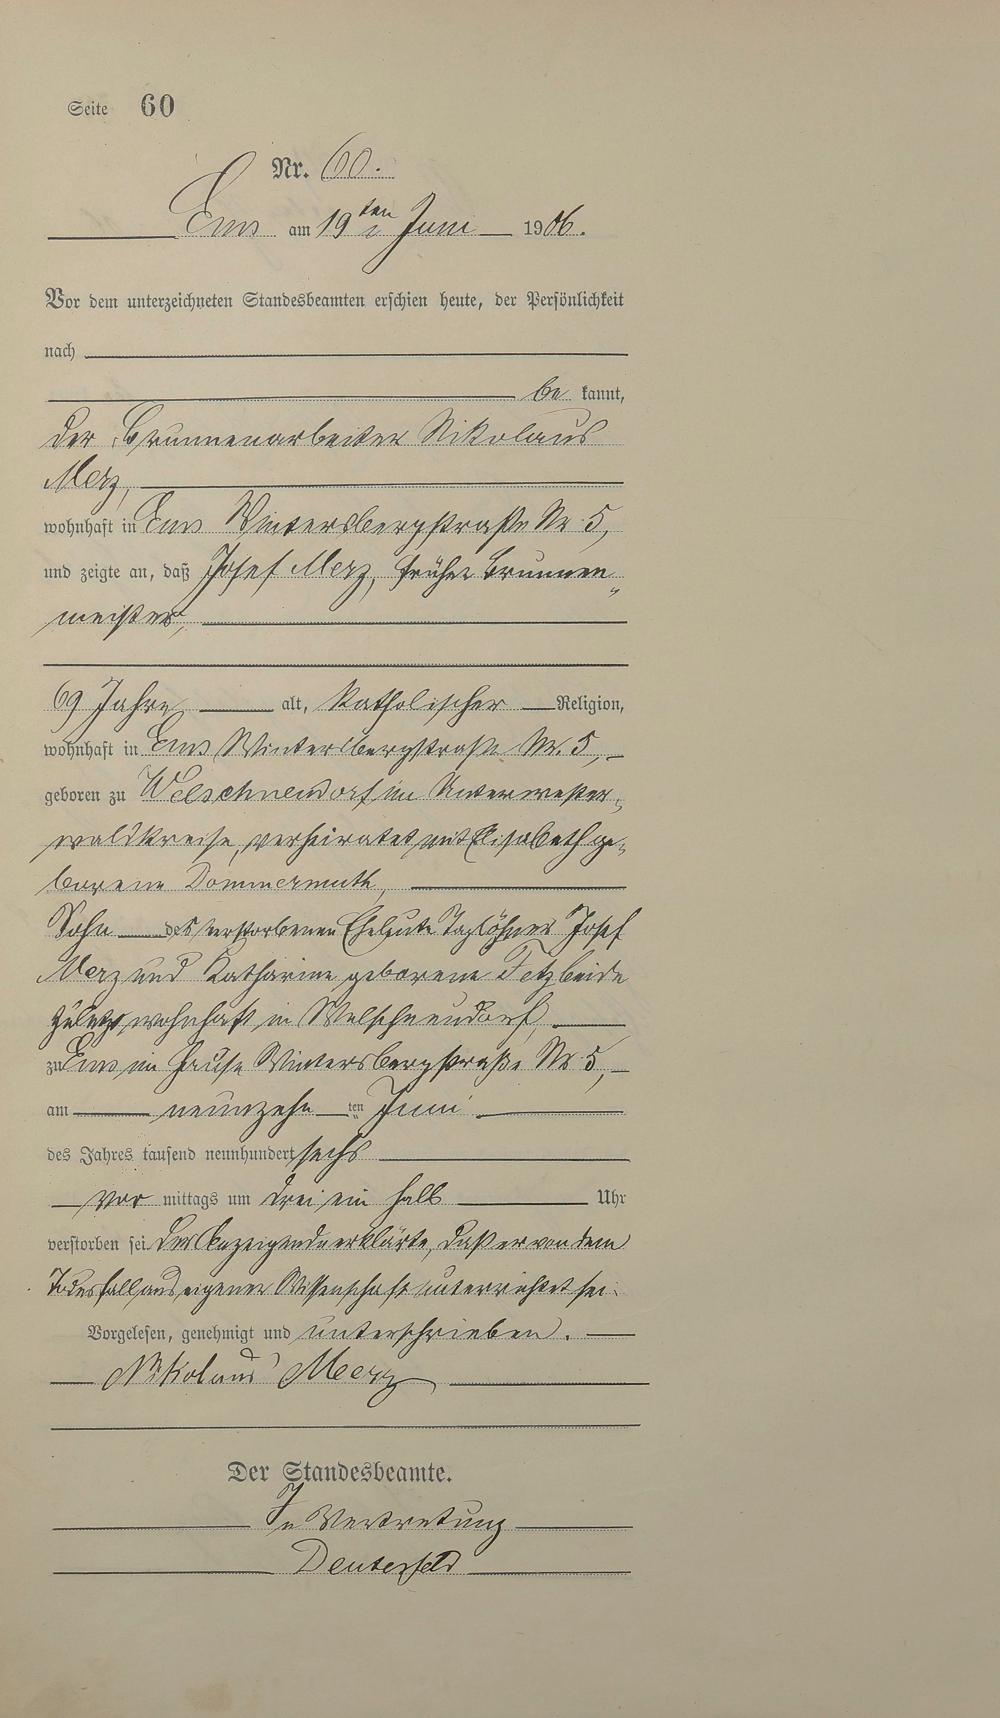 Seite 60
Nr. 60.
Ems am 19ten Juni 1906.
Vor dem unterzeichneten Standesbeamten erschien heute, der Persönlichkeit
nach
be kannt,
der Brunnenarbeiter Nikolaus
Merz,
wohnhaft in Ems Wintersbergstraße Nr. 5,
und zeigte an, daß Josef Merz, früher Brunnen„
meister,
69 Jahre alt, katholischer Religion,
wohnhaft in Ems Wintersbergstraße Nr. 5,
geboren zu Welschneudorf im Unterwester-
waldkreise, verheiratet mit Elisabeth ge-
borene Dommermuth,
Sohn des verstorbenen Eheleute Taglöhner Josef
Merz und Katharine geborene Fetz beide
zuletzt wohnhaft in Welschneudorf,
zu Ems im Hause Wintersbergstraße Nr. 5,
am neunzehn ten Juni
des Jahres tausend neunhundert sechs
vor mittags um drei ein halb Uhr
verstorben sei. Der Anzeigende erklärte, daß er von dem
Todesfall aus eigener Wissenschaft unterrichtet sei.
Vorgelesen, genehmigt und unterschrieben.
Nikolaus Merz
Der Standesbeamte.
In Vertretung